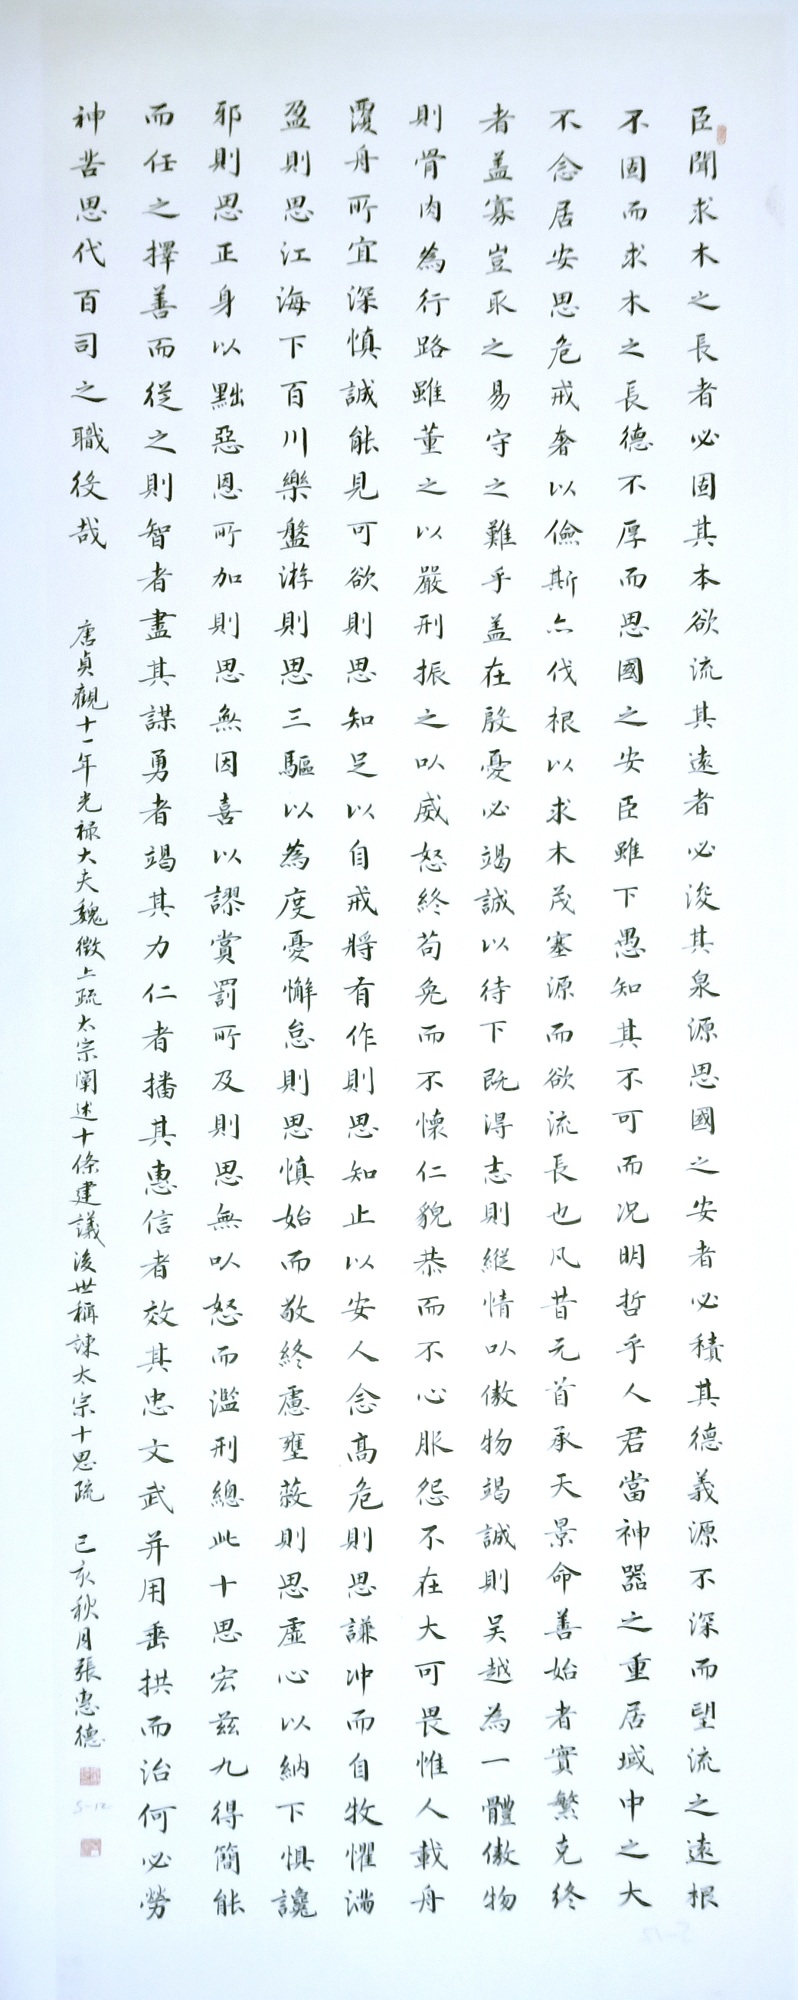 臣聞求木之長者必固其本欲流其遠者必浚其泉源思國之安者必積其德義源不深而望流之遠根
不固而求木之長德不厚而思國之安臣雖下愚知其不可而况明哲乎人君當神器之重居域中之大
不念居安思危戒奢以儉斯亦伐根以求木茂塞源而欲流長也凡昔元首承天景命善始者實繁克終
者盖寡豈取之易守之難乎盖在殷憂必竭誠以待下既得志則縱情以傲物竭誠則吴越為一體傲物
則骨肉為行路雖董之以嚴刑振之以威怒終苟免而不懷仁貌恭而不心服怨不在大可畏惟人載舟
覆舟所宜深慎誠能見可欲則思知足以自戒將有作則思知止以安人念高危則思謙冲而自牧懼滿
盈則思江海下百川樂盤游則思三驅以為度憂懈怠則思慎始而敬終慮壅蔽則思虚心以納下惧讒
邪則思正身以黜惡恩所加則思無因喜以謬賞罰所及則思無以怒而濫刑總此十思宏兹九得簡能
而任之擇善而從之則智者盡其謀勇者竭其力仁者播其惠信者效其忠文武并用垂拱而治何必勞
神苦思代百司之職役哉 唐貞觀十一年光禄大夫魏徵上疏太宗闡述十條建議後世稱諫太宗十思疏 己亥秋月張惠德
5-12